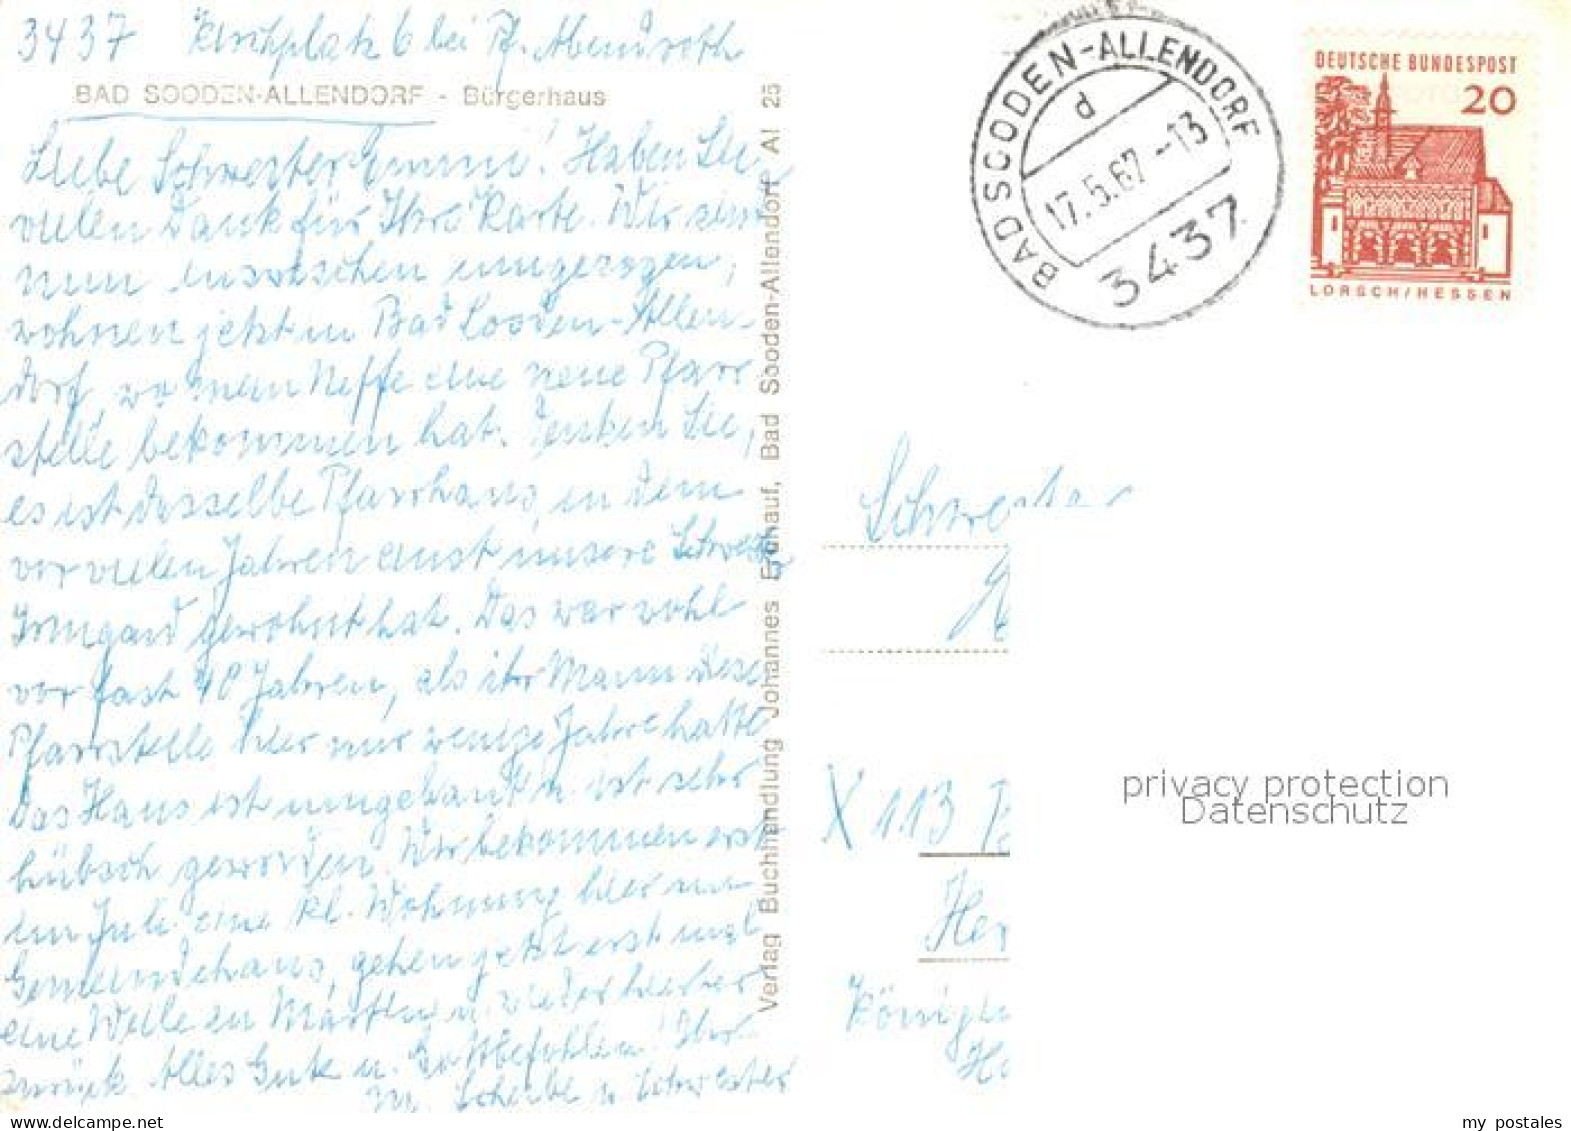 3437 Kirchplatz 6 bei Pf. Abendroth
BAD SOODEN-ALLENDORF - Bürgerhaus
Liebe Schwester Emmi! Haben Sie
vielen Dank für Ihre Karte. Wir sind
nun inzwischen umgezogen,
wohnen jetzt in Bad Sooden-Allen-
dorf, wo mein Neffe eine neue Pfarr
stelle bekommen hat. Denken Sie,
es ist dasselbe Pfarrhaus, in dem
vor vielen Jahren einst unsere Schwester
Irmgard gewohnt hat. Das war wohl
vor fast 40 Jahren, als ihr Mann diese
Pfarrstelle hier nur wenige Jahre hatte
Das Haus ist umgebaut u. ist sehr
hübsch geworden. Wir bekommen erst
im Juli eine kl. Wohnung hier im
Gemeindehaus, gehen jetzt erst mal
eine Weile zu u. wieder hierher
zurück. Alles Gute u. Gottbefohlen! Ihre
M. Scheibe u. Schwester
Verlag Buchhandlung Johannes Frühauf, Bad Sooden-Allendorf Al 25
BAD SOODEN-ALLENDORF
d
17.5.67 --13
3437
DEUTSCHE BUNDESPOST
20
LORSCH/HESSEN
Schwester
X 113
privacy protection
Datenschutz
my postales